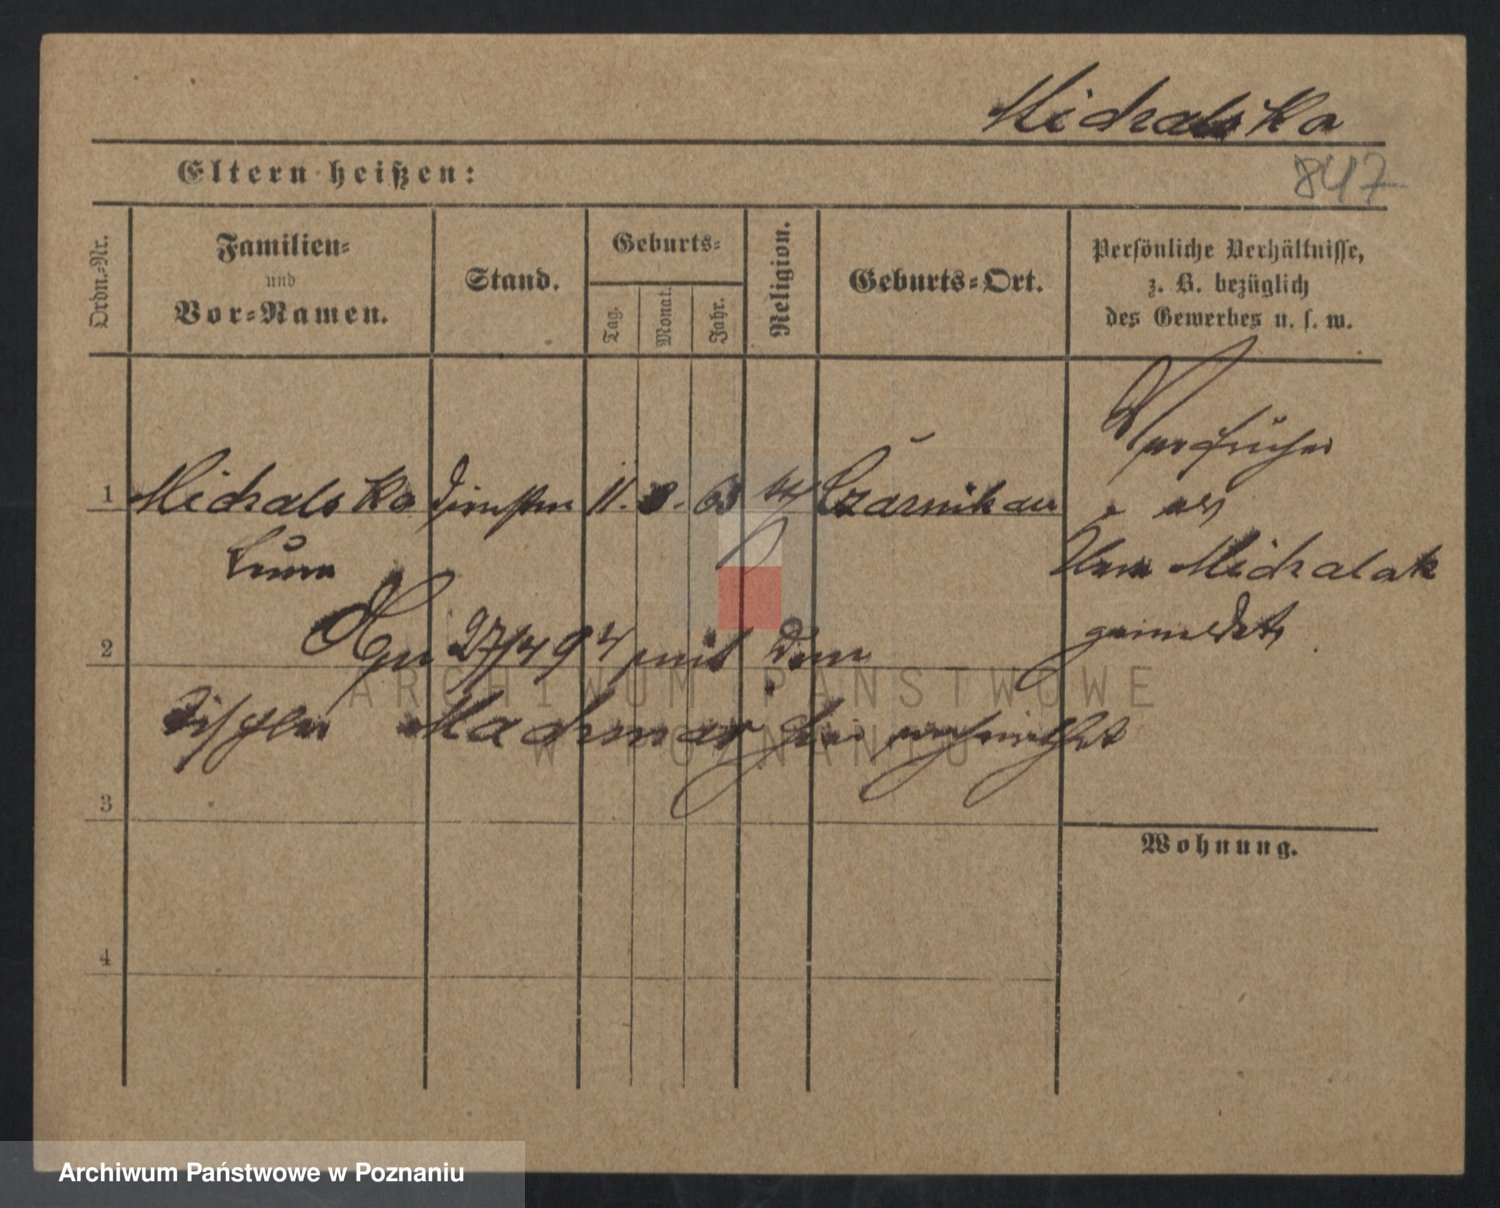 Michalska
Eltern heißen:
847
Ordn.-Nr.
Familien-
und
Vor-Namen.
Stand.
Geburts-
Tag.
Monat.
Jahr.
Religion.
Geburts-Ort.
Persönliche Verhältnisse,
z. B. bezüglich
des Gewerbes u. s. w.
1
Michalska 11. 8. 63 Czarnikau
früher
als
Michalak
gemeldet.
27/4 94 mit dem
2
Tischler verheirathet
3
Wohnung.
4
ARCHIWUM PAŃSTWOWE
W POZNANIU
Archiwum Państwowe w Poznaniu